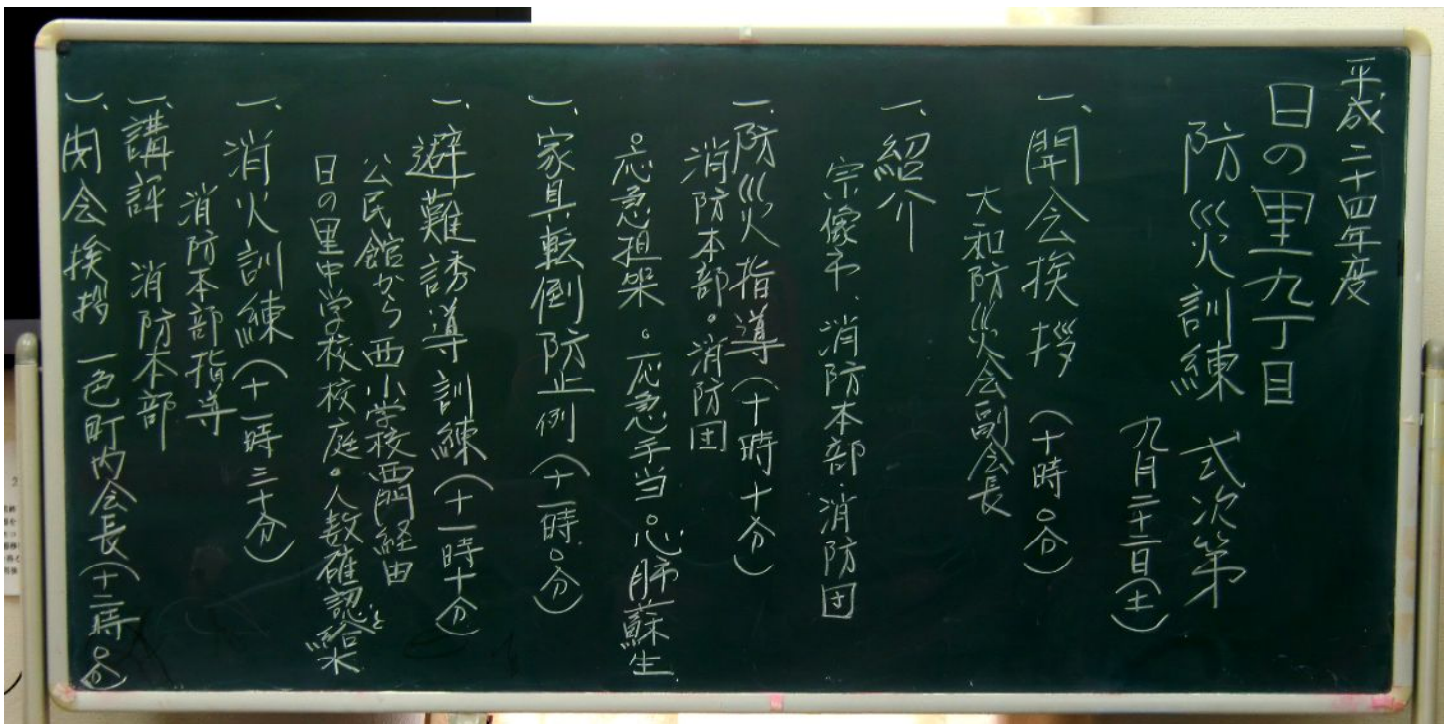 平成二十四年度
日の里九丁目
防災訓練 式次第
九月二十二日(土)
一、開会挨拶(十時〇分)
大和防災会副会長
一、紹介
宗像市、消防本部、消防団
一、防災指導(十時十分)
消防本部。消防団
。応急担架。応急手当。心肺蘇生
一、家具転倒防止例(十一時〇分)
一、避難誘導訓練(十一時十分)
公民館から西小学校西門経由
日の里中学校校庭。人数確認と給水
一、消火訓練(十一時三十分)
消防本部指導
一、講評 消防本部
一、閉会挨拶 一色町内会長(十二時〇分)